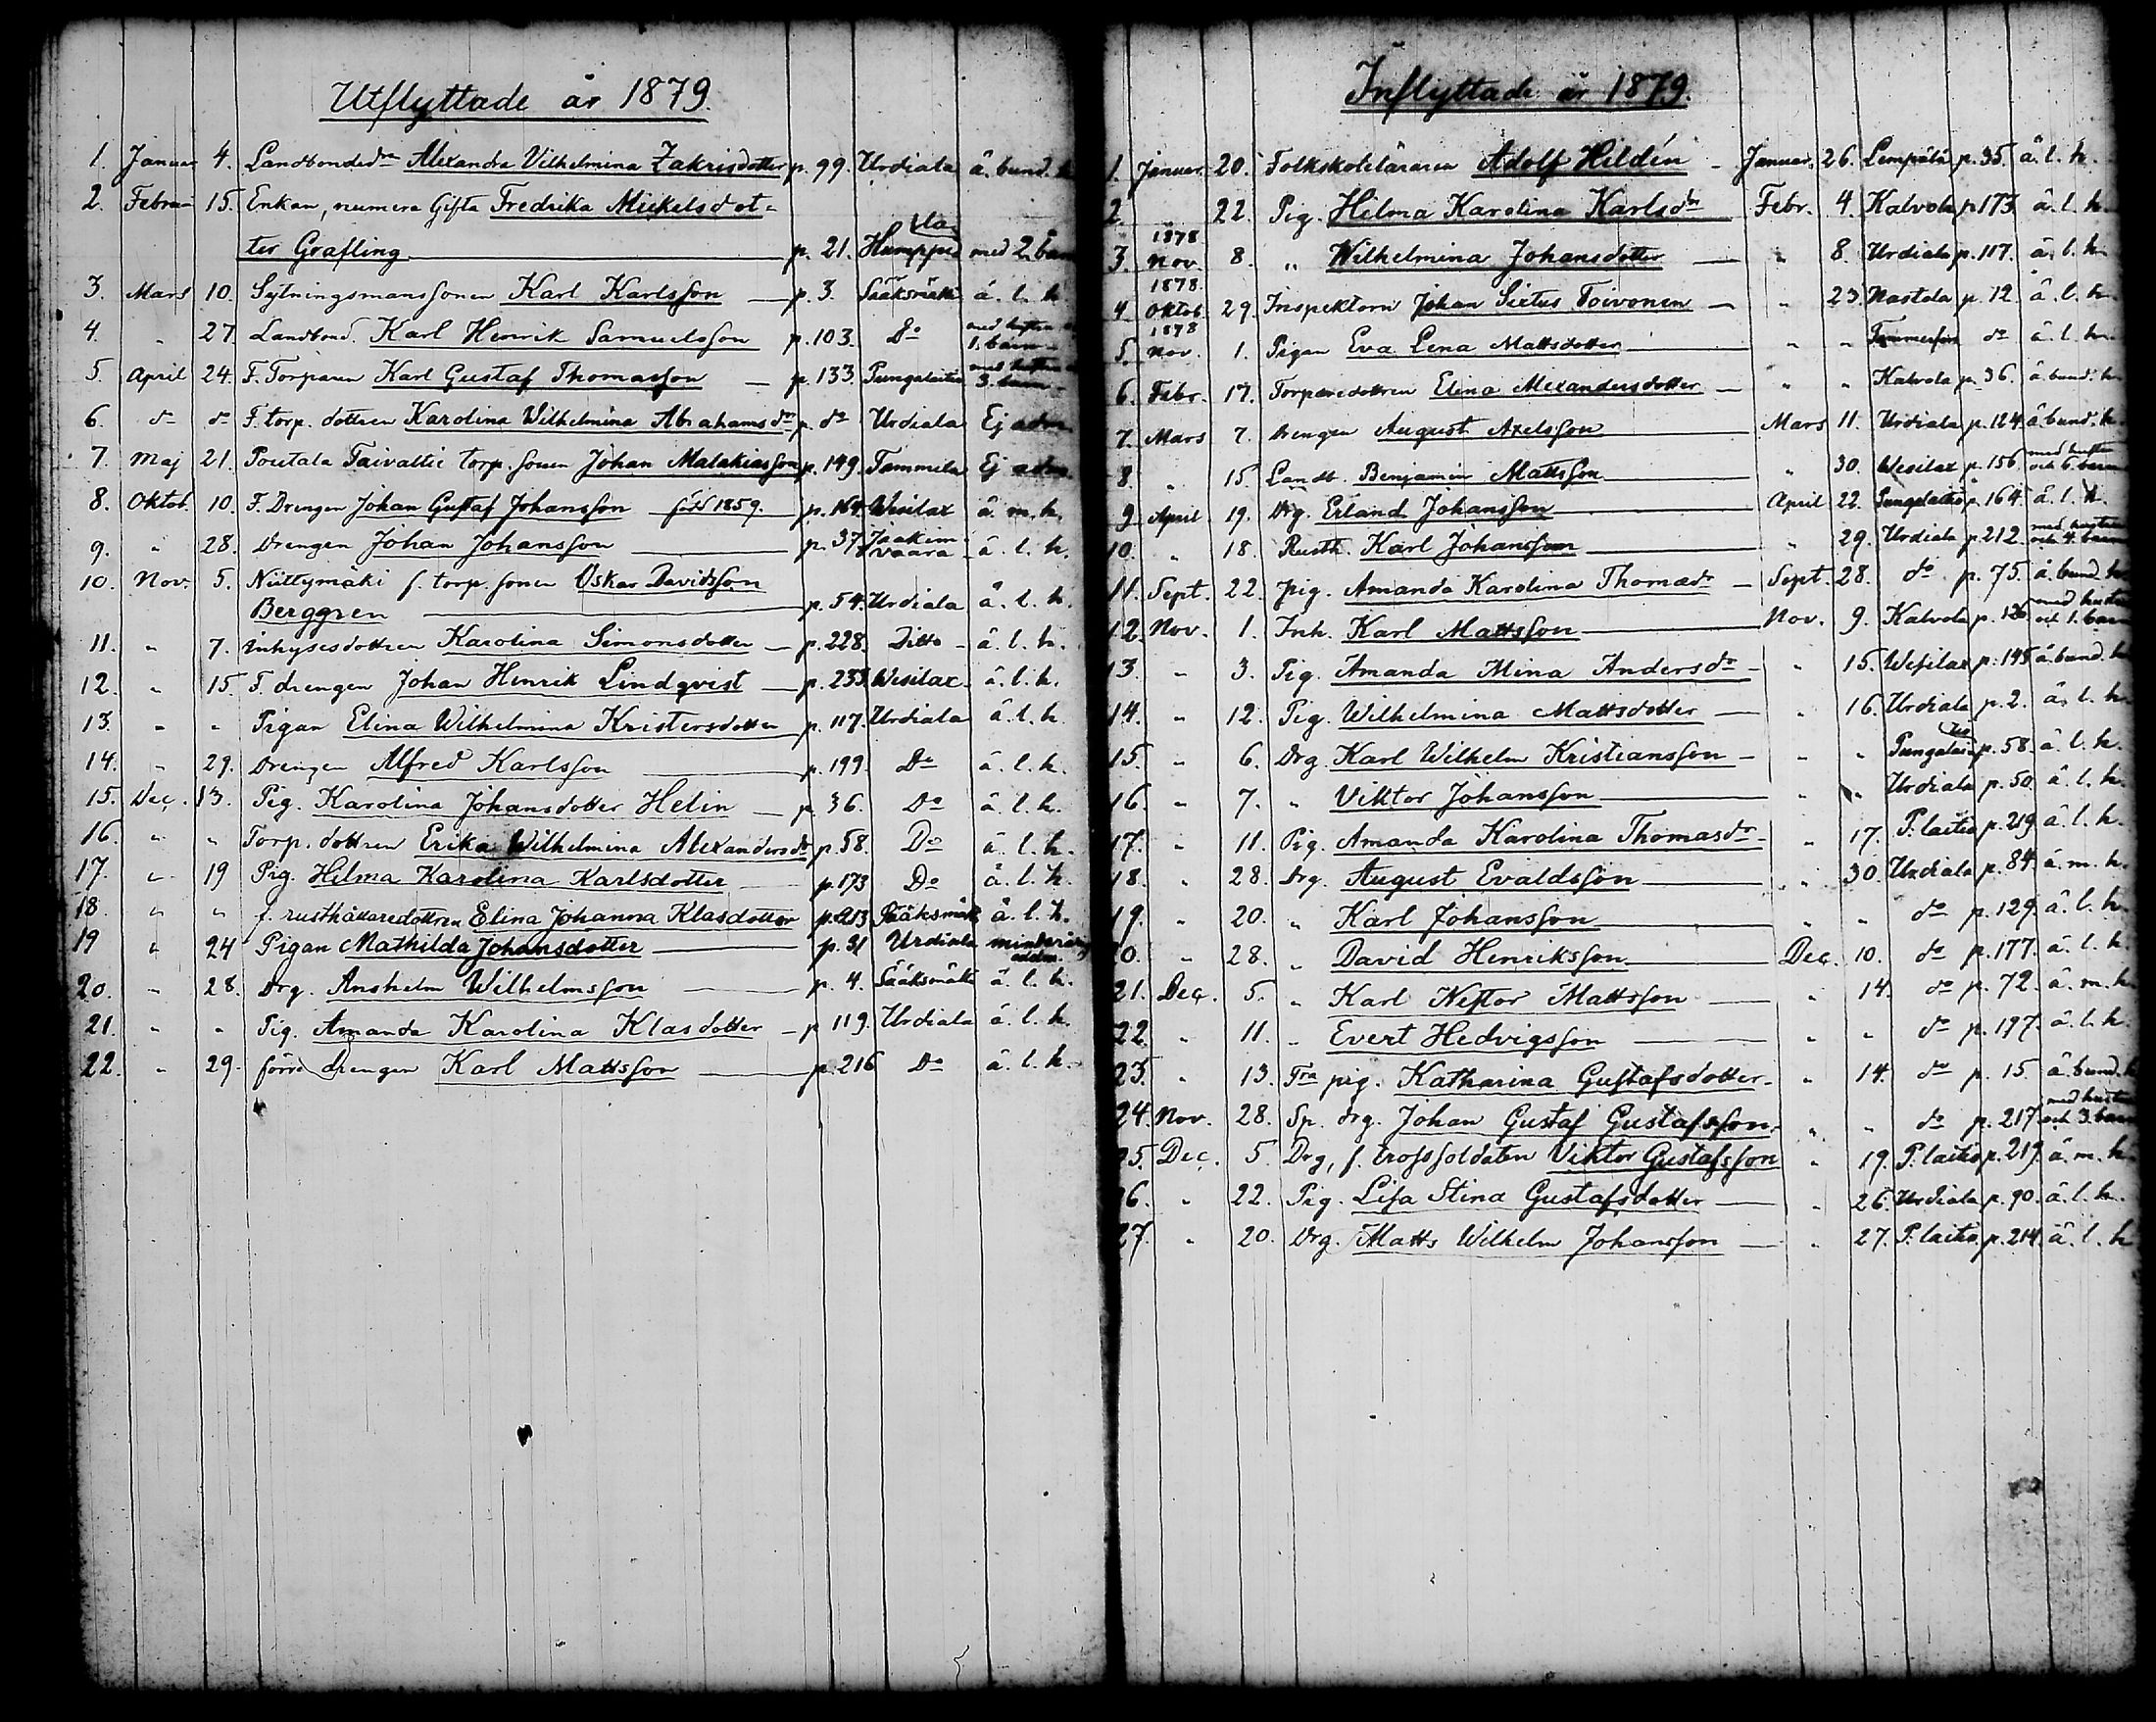 Utflyttade år 1879.
1. Januar 4. Landbondedr Alexandra Vilhelmina Zakrisdotter p. 99. Urdiala ä. bund. h
2. Februar 15. Enkan, numera Gifta Fredrika Mickelsdot-
ter Grafling p. 21. Humppila med 2. barn
3. Mars 10. Sytningsmanssonen Karl Karlsson p. 3. Sääksmäki ä. l. h.
4. " 27 Landbond. Karl Henrik Samuelsson p. 103. Do med hustru 1. barn
5. April 24. F. Torparen Karl Gustaf Thomasson p. 133. Pungalaitio med hustru 3. barn
6. do do F. torp. dottren Karolina Wilhelmina Abrahamsdr p. do Urdiala Ej adm.
7. Maj 21. Poutala Taivaltie torp. sonen Johan Malakiasson p. 149. Tammela Ej adm.
8. Oktob. 10. F. Drengen Johan Gustaf Johansson född 1859. p. 164. Wesilax ä. m. h.
9. " 28. Drengen Johan Johansson p. 37. Jaakimvaara ä. l. h.
10. Nov. 5. Niittymäki f. torp. sonen Oskar Davidsson
Berggren p. 54. Urdiala ä. l. h.
11. " 7. Inhysesdottren Karolina Simonsdotter p. 228. Ditto ä. l. h.
12. " 15. F. drengen Johan Henrik Lindqvist p. 233. Wesilax ä. l. h.
13. " " Pigan Elina Wilhelmina Kristersdotter p. 117. Urdiala ä. l. h
14. " 29. Drengen Alfred Karlsson p. 199. Do ä. l. h.
15. Dec. 13. Pig. Karolina Johansdotter Helin p. 36. Do ä. l. h.
16. " " Torp. dottren Erika Wilhelmina Alexandersdr p. 58. Do ä. l. h.
17. " 19 Pig. Helma Karolina Karlsdotter p. 173 Do ä. l. h.
18. " " f. rusthållaredottren Elina Johanna Klasdotter p. 213 Sääksmäki ä. l. h.
19 " 24 Pigan Mathilda Johansdotter p. 31 Urdiala minderårig
20. " 28. Drg. Anshelm Wilhelmsson p. 4. Sääksmäki ä. l. h.
21. " " Pig. Amanda Karolina Klasdotter p. 119. Urdiala ä. l. h.
22. " 29. förre drengen Karl Mattsson p. 216 Do ä. l. h.
Inflyttade år 1879.
1. Januar. 20. Folkskoleläraren Adolf Hildén Januar. 26. Lempälä p. 35. ä. l. h.
2. 22. Pig. Helma Karolina Karlsdtr Febr. 4. Kalvola p. 173. ä. l. h.
3. 1878 Nov. 8. " Wilhelmina Johansdotter " 8. Urdiala p. 117. ä. l. h.
4. 1878. Oktob. 29. Inspektorn Johan Sixtus Toivonen " 23. Nastola p. 12. ä. l. h.
5. 1878 Nov. 1. Pigan Eva Lena Mattsdotter " " Tammerfors do ä. l. h.
6. Febr. 17. Torparedottren Elina Alexandersdotter " " Kalvola p. 36. ä bund. h.
7. Mars 7. Drengen August Axelsson Mars 11. Urdiala p. 124. ä bund. h.
8. " 15. Landb. Benjamin Mattsson " 30. Wesilax p. 156 med hustru och 6. barn
9. April 19. Drg. Erland Johansson April 22. Pungalaitio p. 164. ä. l. h.
10. " 18. Rusth. Karl Johansson " 29. Urdiala p. 212. med hustru och 4 barn
11. Sept. 22. pig. Amanda Karolina Thomasdr Sept. 28. do p. 75. ä. bund. h
12. Nov. 1. Inh. Karl Mattsson Nov. 9. Kalvola p. 126 med hustru och 1. barn
13. " 3. Pig. Amanda Mina Andersdr " 15. Wesilax p. 145 ä bund. h
14. " 12. Pig. Wilhelmina Mattsdotter " 16. Urdiala p. 2. ä. l. h.
15. " 6. Drg. Karl Wilhelm Kristiansson " " Pungalaitio p. 58. ä. l. h.
16. " 7. " Viktor Johansson " " Urdiala p. 50. ä. l. h.
17. " 11. Pig. Amanda Karolina Thomasdr " 17. P. laitio p. 219. ä. l. h.
18. " 28. Drg. August Evaldsson " 30. Urdiala p. 84. ä. m. h.
19. " 20. " Karl Johansson " " do p. 129. ä. l. h.
20. " 28. " David Henriksson Dec. 10. do p. 177. ä. l. h.
21. Dec. 5. " Karl Nestor Mattsson " 14. do p. 72. ä. m. h
22. " 11. " Evert Hedvigsson " " do p. 197. ä. l. h.
23. " 13. Fra pig. Katharina Gustafsdotter " 14. do p. 15. ä. bund. h
24. Nov. 28. Sp. drg. Johan Gustaf Gustafsson " " do p. 217 med hustru och 3. barn
25. Dec. 5. Drg, f. trossoldaten Viktor Gustafsson " 19. P. laitio p. 219. ä. m. h.
26. " 22. Pig. Lisa Stina Gustafsdotter " 26. Urdiala p. 90. ä. l. h.
27. " 20. Drg. Matts Wilhelm Johansson " 27. P. laitio p. 214. ä. l. h